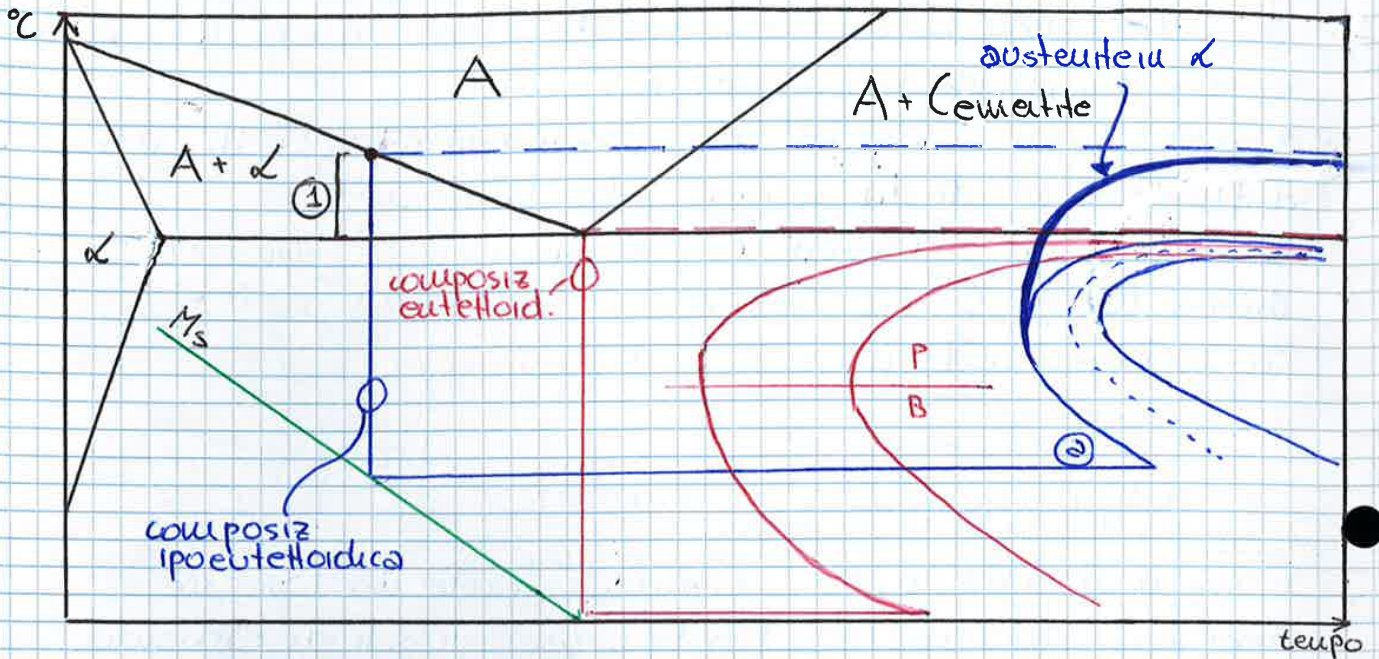 °C
A
austenite in α
A + Cementite
A + α
①
α
composiz.
eutettoid.
Ms
P
B
②
composiz
ipoeutettoidica
tempo